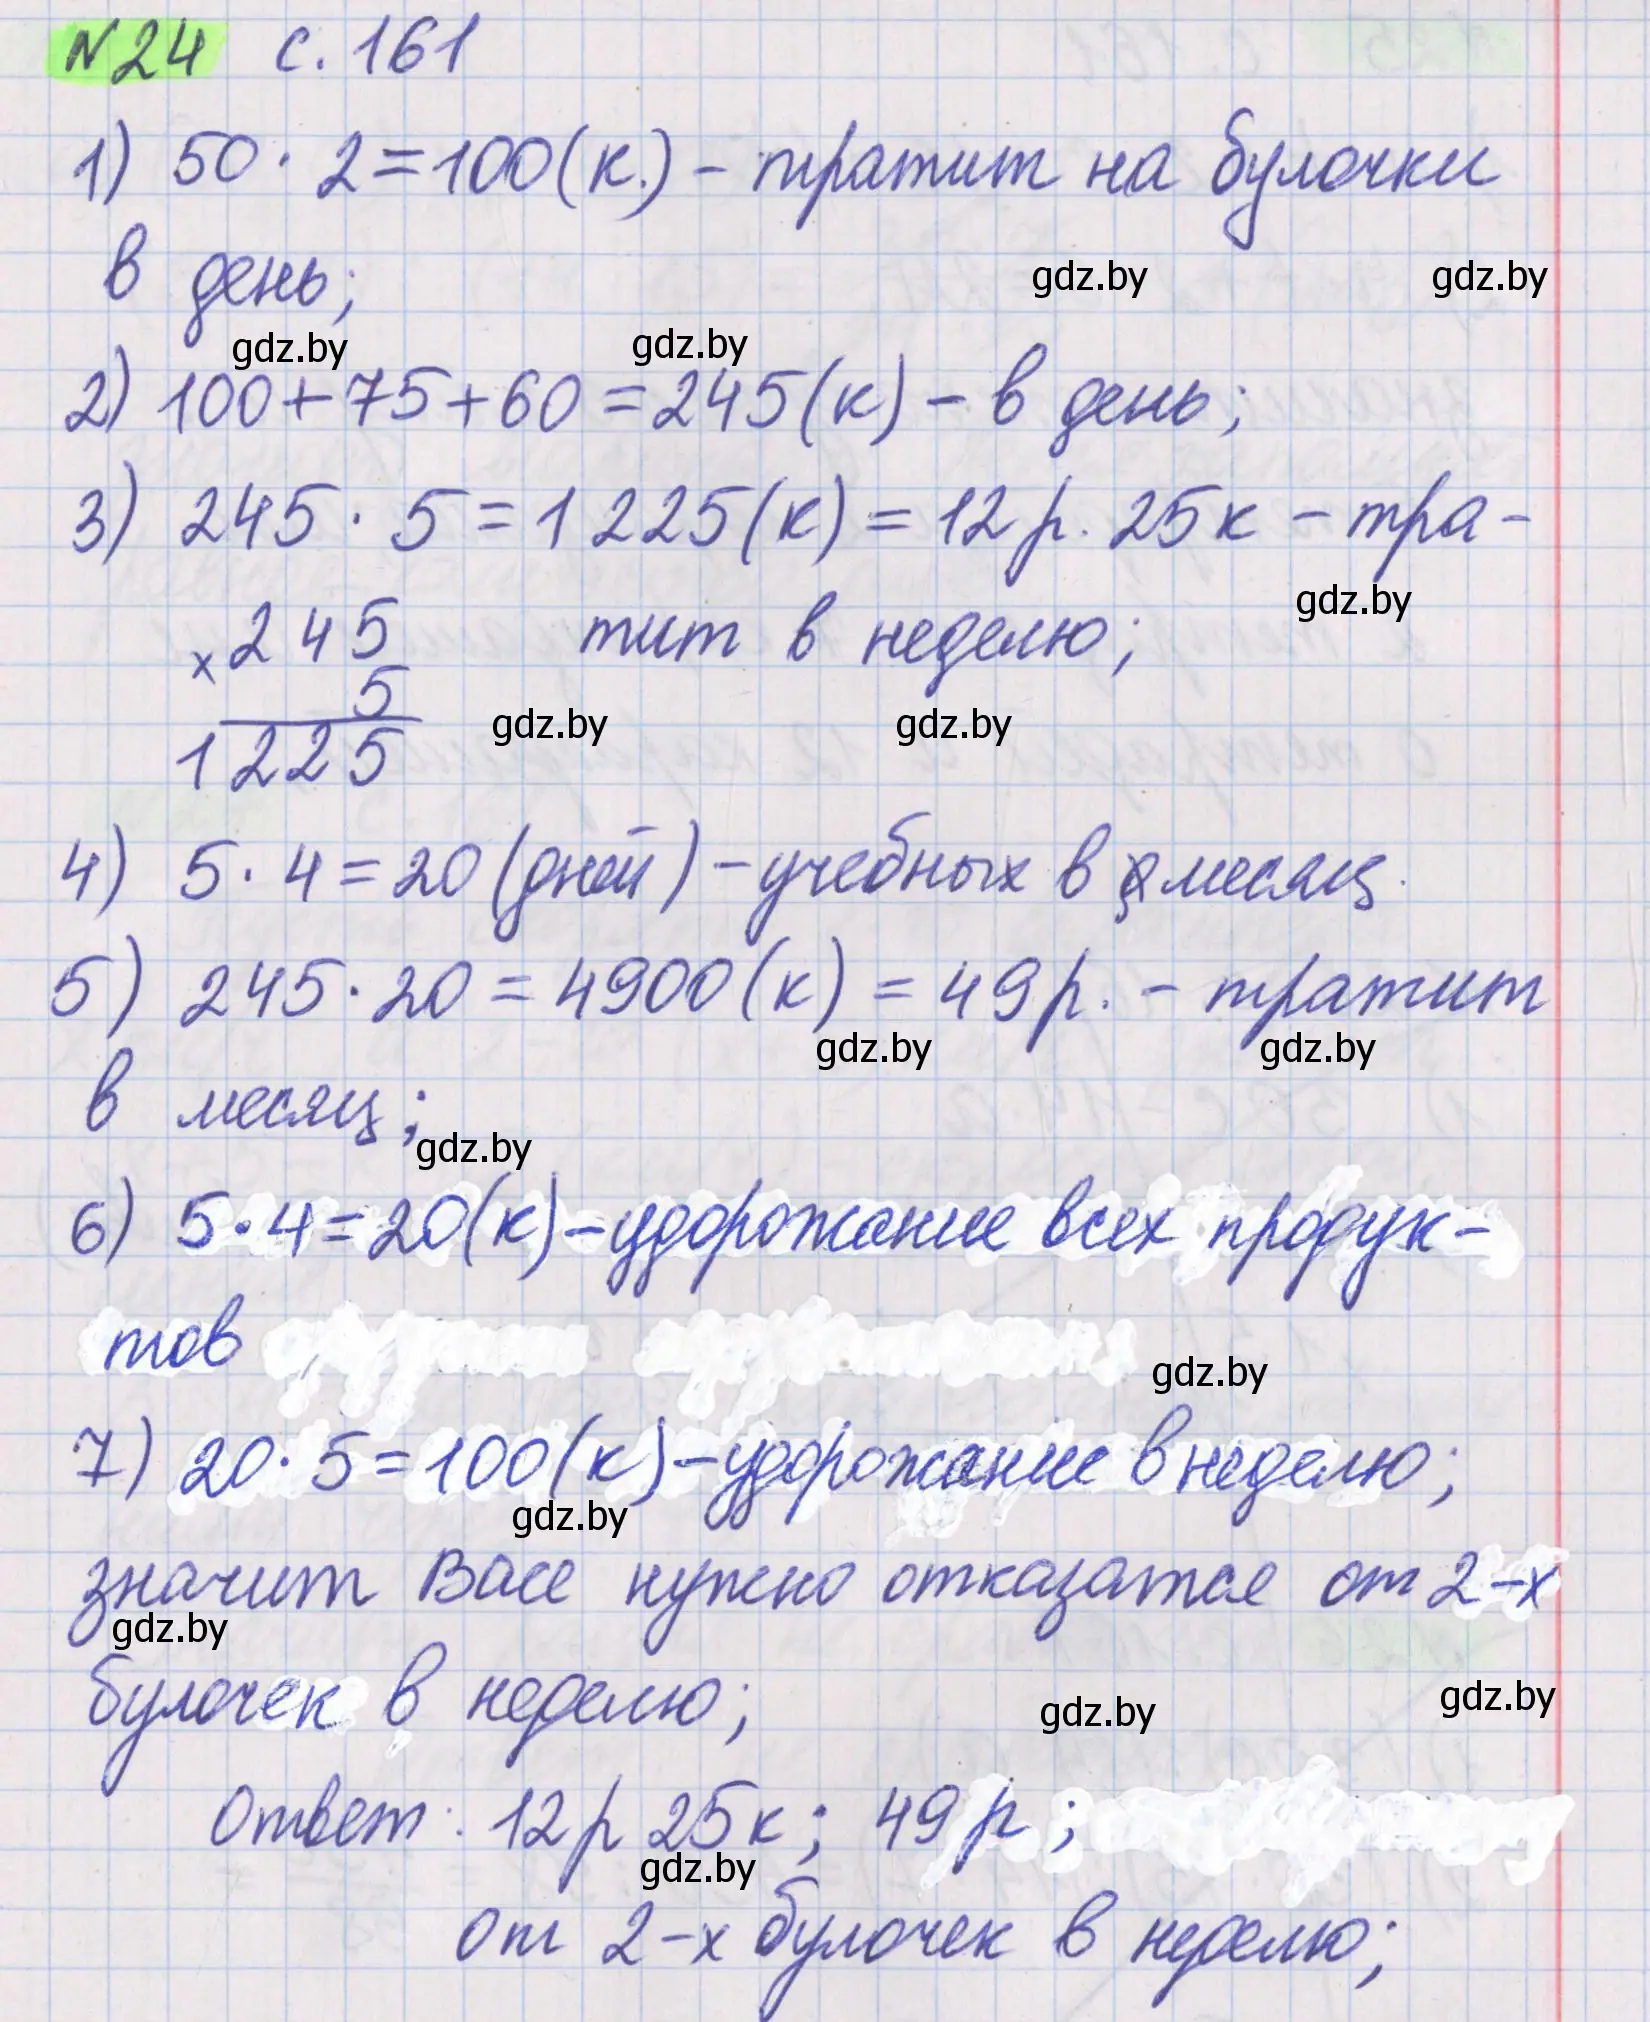 №24 с. 161
1) 50 · 2 = 100 (к.) – тратит на булочки
в день;
gdz.by gdz.by
gdz.by gdz.by
2) 100 + 75 + 60 = 245 (к) – в день;
3) 245 · 5 = 1225 (к) = 12 р. 25 к – тра-
gdz.by
× 245 тит в неделю;
5
gdz.by gdz.by
1225
4) 5 · 4 = 20 (дней) – учебных в месяц.
5) 245 · 20 = 4900 (к) = 49 р. – тратит
gdz.by gdz.by
в месяц;
gdz.by
6) 5 · 4 = 20 (к) – удорожание всех продук-
тов
gdz.by
7) 20 · 5 = 100 (к) – удорожание в неделю;
gdz.by
значит Васе нужно отказатся от 2-х
gdz.by
булочек в неделю;
gdz.by gdz.by
Ответ: 12 р 25 к; 49 р;
gdz.by
от 2-х булочек в неделю;